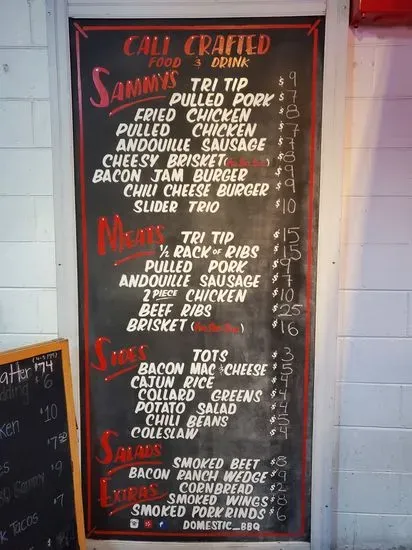 CALI CRAFTED
FOOD & DRINK
SAMMYS
TRI TIP $9
PULLED PORK $7
FRIED CHICKEN $8
PULLED CHICKEN $7
ANDOUILLE SAUSAGE $7
CHEESY BRISKET $8
BACON JAM BURGER $9
CHILI CHEESE BURGER $9
SLIDER TRIO $10
MEATS
TRI TIP $15
1/2 RACK OF RIBS $15
PULLED PORK $9
ANDOUILLE SAUSAGE $7
2 PIECE CHICKEN $10
BEEF RIBS $25
BRISKET $16
SIDES
TOTS $3
BACON MAC & CHEESE $5
CAJUN RICE $4
COLLARD GREENS $4
POTATO SALAD $4
CHILI BEANS $5
COLESLAW $4
SALADS
SMOKED BEET $8
BACON RANCH WEDGE $9
EXTRAS
CORNBREAD $2
SMOKED WINGS $8
SMOKED PORK RINDS $6
DOMESTIC_BBQ
atter $74
dding $6
$10
ken $7.50
$9
Sammy
$7
k Tacos